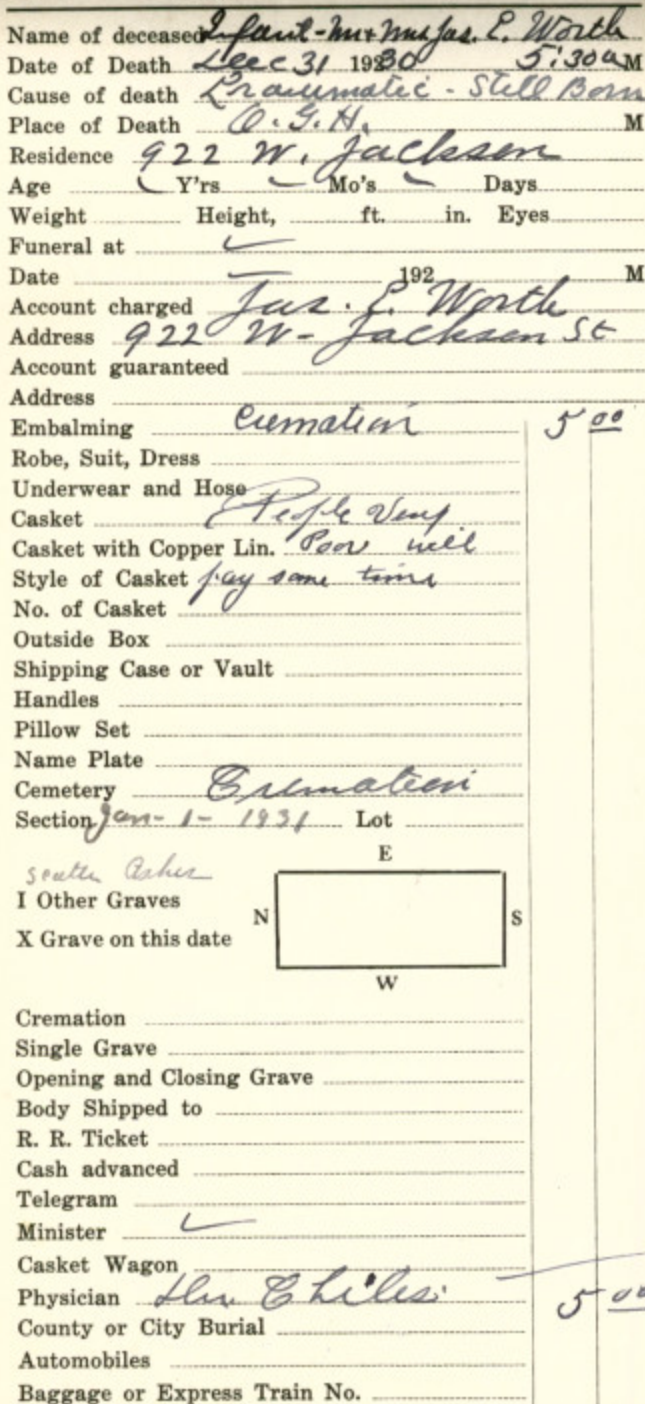 Name of deceased Infant - Mr + Mrs Jas. E. Worth
Date of Death Dec 31 1930 5:30 a M
Cause of death Traumatic - Still Born
Place of Death O. G. H. M
Residence 922 W. Jackson
Age Y'rs Mo's Days
Weight Height, ft. in. Eyes
Funeral at
Date 192 M
Account charged Jas. E. Worth
Address 922 W - Jackson St
Account guaranteed
Address
Embalming Cremation 5 00
Robe, Suit, Dress
Underwear and Hose
Casket People Very
Casket with Copper Lin. Poor will
Style of Casket pay some time
No. of Casket
Outside Box
Shipping Case or Vault
Handles
Pillow Set
Name Plate
Cemetery Cremation
Section Jan - 1 - 1931 Lot
E
scatter Ashes
I Other Graves
N S
X Grave on this date
W
Cremation
Single Grave
Opening and Closing Grave
Body Shipped to
R. R. Ticket
Cash advanced
Telegram
Minister
Casket Wagon
Physician Chiles 5 00
County or City Burial
Automobiles
Baggage or Express Train No.